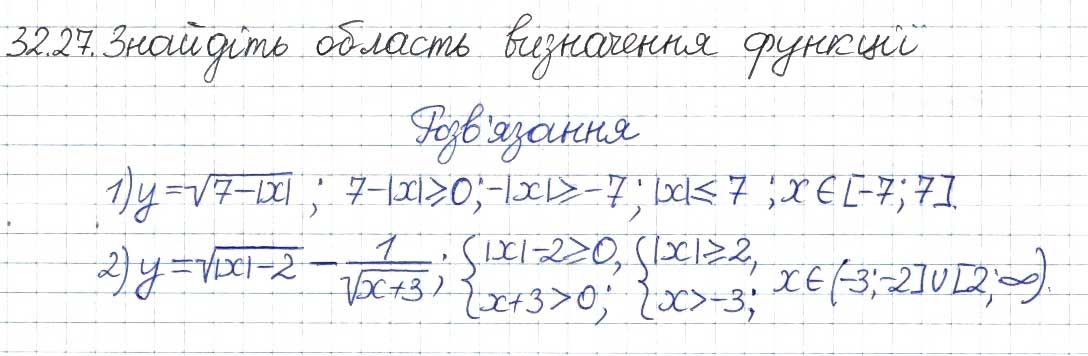 32.27. Знайдіть область визначення функції
Розв'язання
1) y = √(7-|x|) ; 7-|x| ≥ 0; -|x| ≥ -7; |x| ≤ 7 ; x ∈ [-7; 7].
2) y = √(|x|-2) - 1/√(x+3); {|x|-2 ≥ 0, x+3 > 0; {|x| ≥ 2, x > -3; x ∈ (-3; -2] ∪ [2; ∞).